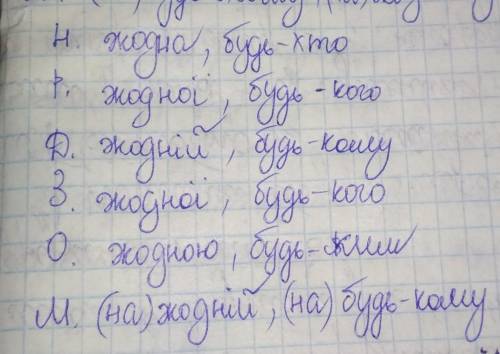 Н. жодна, будь-хто
Р. жодної, будь-кого
Д. жодній, будь-кому
З. жодної, будь-кого
О. жодною, будь-ким
М. (на) жодній, (на) будь-кому